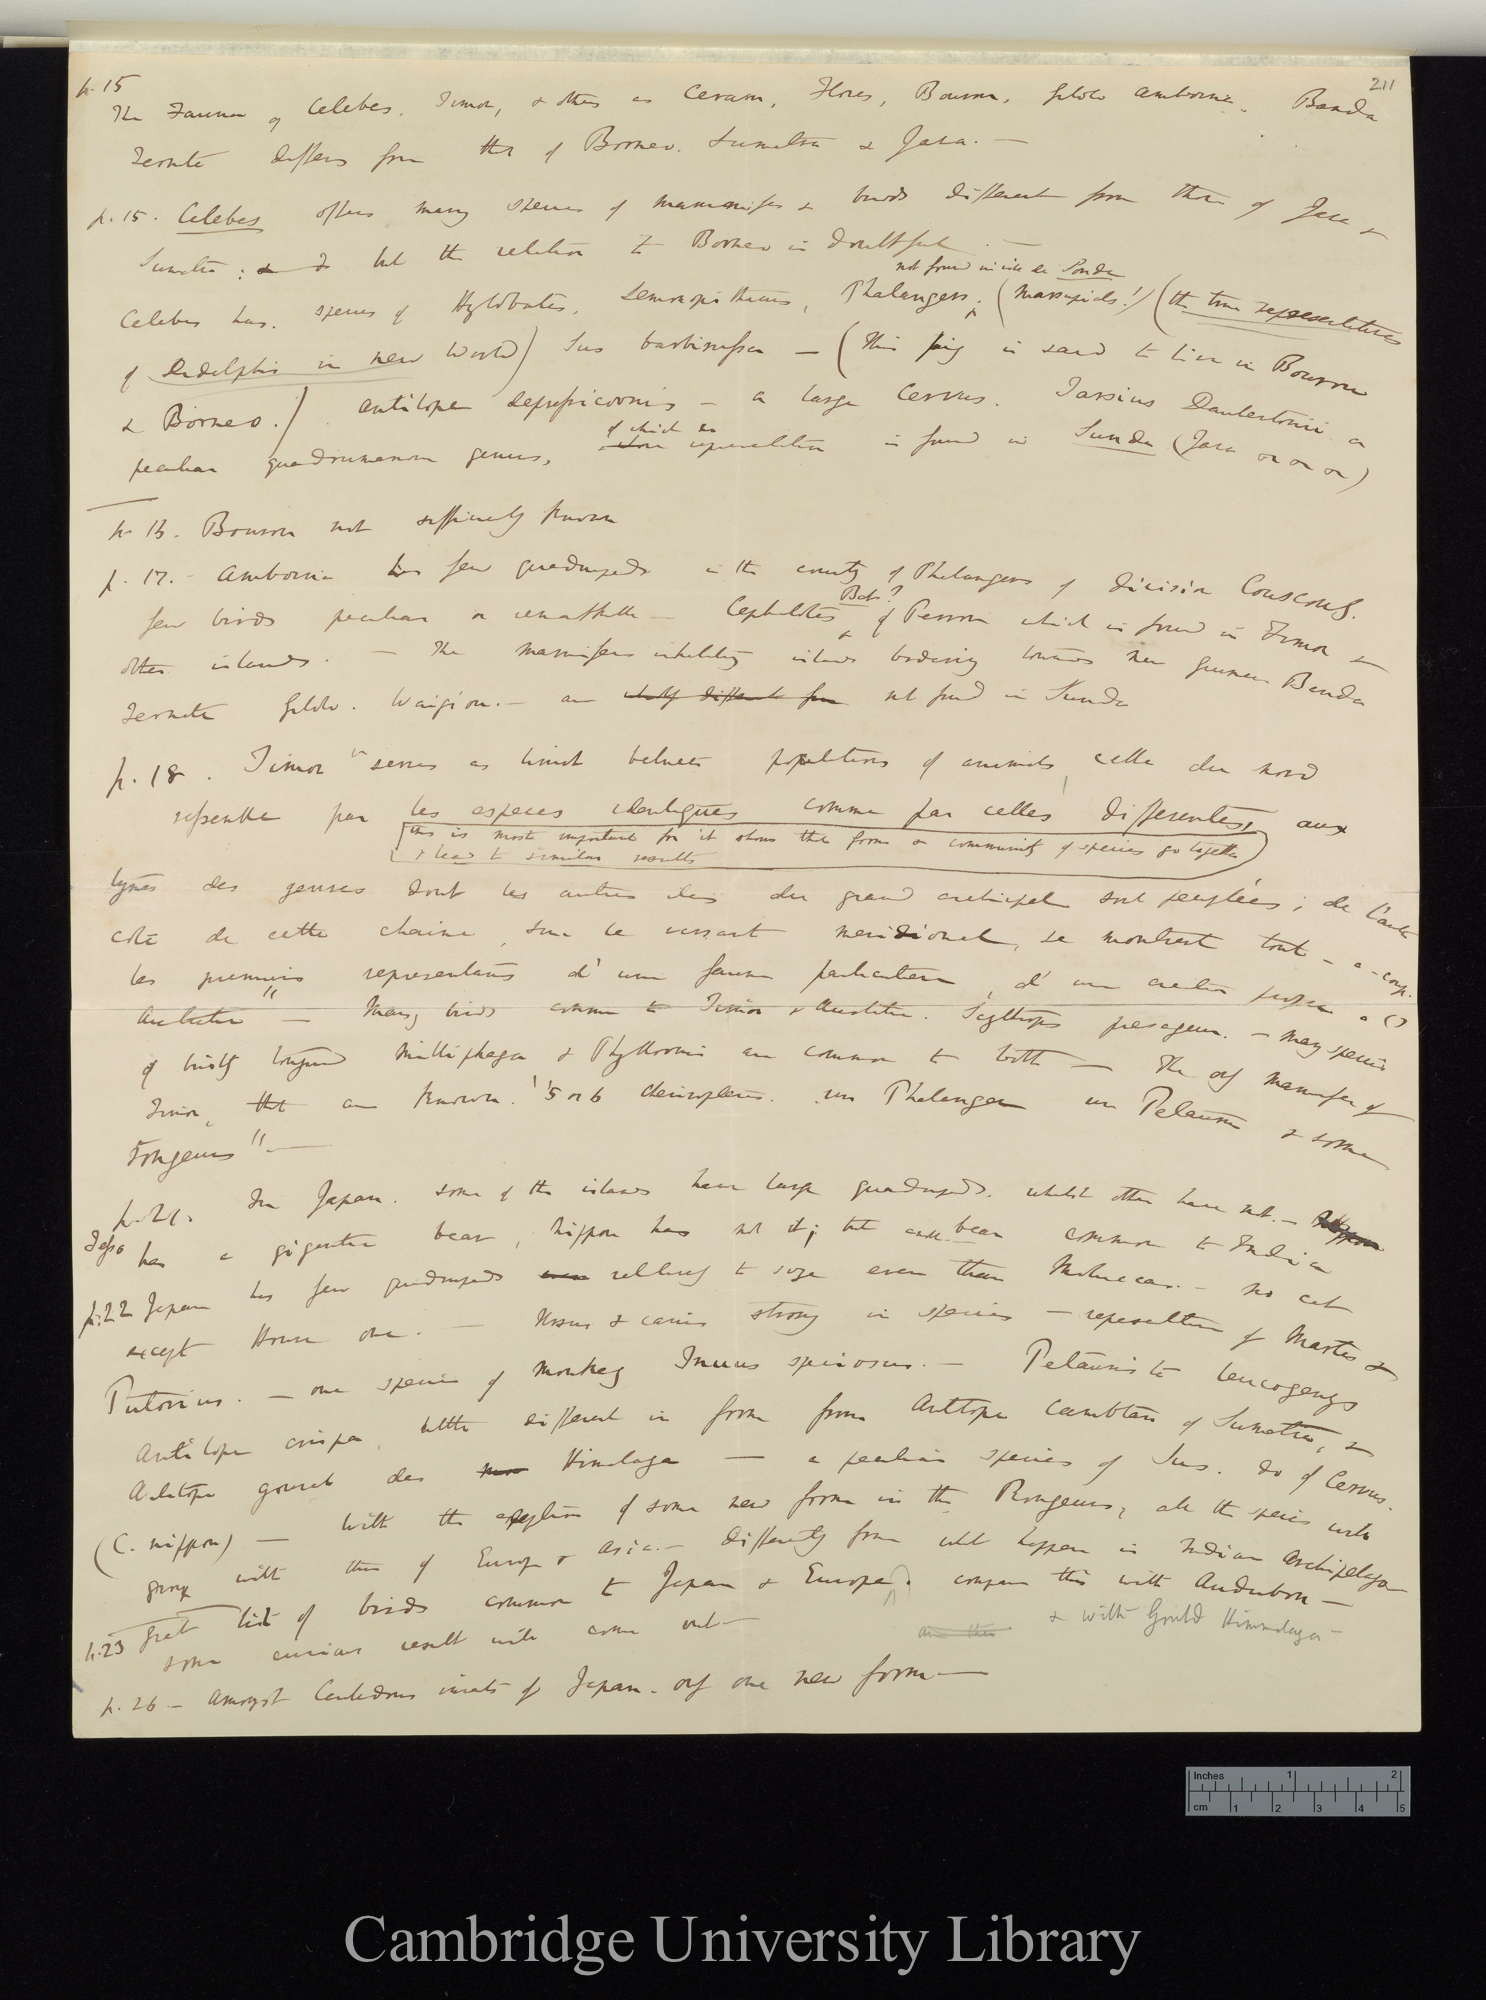 211
p. 15
The Fauna of Celebes, Timor, & others as Ceram, Flores, Bouron, Gilolo Amboina, Banda
Ternate differs from that of Borneo, Sumatra & Java. —
p. 15. Celebes offers many species of mammifers & birds different from those of Java &
Sumatra: & do but the relation to Borneo is doubtful. —
not found in isle de Sonda
Celebes has species of Hylobates, Semnopithecus, Phalangers, (Marsupials!) (the true representatives
of Didelphis in new World) Sus barbirussa — (this pig is said to live in Bouron
& Borneo.) antilope depressicornis — a large Cervus. Tarsius Daubentonii a
of which no
peculiar quadrumanous genus, whose representation is found in Sunda (Java or or or)
p. 16. Bouron not sufficiently known
p. 17. — Amboina has few quadrupeds is the country of Phalangers of division Couscous.
Bats?
few birds peculiar or remarkable — Cephalotes of Peron which is found in Timor &
other islands. — The mammifers inhabiting islands bordering towards New Guinea Banda
Ternate Gilolo. Waigiou. — are wholly different from not found in Sunda
p. 18. Timor "serves as limit between populations of animals, celle du nord
ressemble par les especes identiques comme par celles differentes, aux
this is most important for it shows that forms & community of species go together
& lead to similar results
types des genres dont les autres iles du grand archipel sont peuplées; de l'autre
coté de cette chaine, sur le versant meridional, se montrent tout-a-coup.
les premiers representans d'une faune particuliere, d'une creation propre a l'
Australie" — Many birds common to Timor & Australia. Scythrops presageur. — many species
of bristly tongued Melliphaga & Phyllornis are common to both — The only mammifers of
Timor, that are known. "5 or 6 cheiropteres. un Phalanger un Petaurus & some
Rongeurs" —
p. 21. In Japan. some of the islands have large quadrupeds. whilst others have not. — Nippon
Jesso has a gigantic bear, Nippon has not it; but small bear common to India
p. 22 Japan has few quadrupeds even relatively to size even than Moluccas. — no cat
except House one. — Ursus & canis strong in species — representation of Martes &
Putorius. — one species of monkey Inuus speciosus. — Petaurista leucogenys
Antilope crispa, little different in form from Antilope Cambtan of Sumatra, &
Antilope goural des Himalaya — a peculiar species of Sus. do of Cervus.
(C. nippon) — With the exception of some new forms in the Rongeurs, all the species will
group with those of Europe & Asia. — Differently from what happens in Indian Archipelago
p. 23 great list of birds common to Japan & Europe. compare this with Audubon —
some curious result will come out —
& with Gould Himmalaya —
p. 26 — Amongst insects of Japan. only one new form —
Inches 1 2
cm 1 2 3 4 5
Cambridge University Library